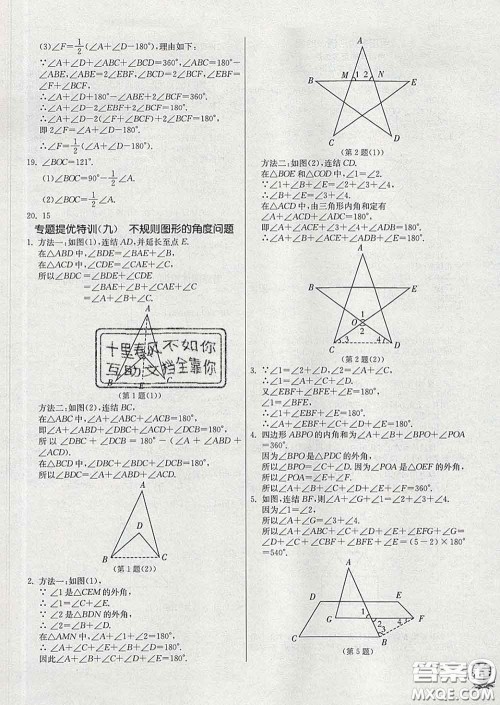 (3)∠F=1/2(∠A+∠D-180°),理由如下:
∵∠A+∠D+∠ABC+∠BCD=360°,∠ABC=180°-
∠ABE,∠ABE=2∠EBF,∠BCD=2∠BCF,∠EBF=
∠F+∠BCF,
∴∠A+∠D+180°-∠ABE+2∠BCF=360°.
∴∠A+∠D-2∠EBF+2∠BCF=180°.
∴∠A+∠D-2(∠F+∠BCF)+2∠BCF=180°,
即2∠F=∠A+∠D-180°.
∴∠F=1/2(∠A+∠D-180°).
19. ∠BOC=121°.
(1)∠BOC=90°-1/2∠A.
(2)∠BOC=1/2∠A.
20. 15
专题提优特训(九) 不规则图形的角度问题
1. 方法一:如图(1),连结AD,并延长至点E.
在△ABD中,∠BDE=∠BAE+∠B,
在△ACD中,∠CDE=∠CAE+∠C,
所以∠BDC=∠BDE+∠CDE
=∠BAE+∠B+∠CAE+∠C
=∠A+∠B+∠C.
A
十里春风不如你
互助文档全靠你
B
E
C
(第1题(1))
方法二:如图(2),连结BC,
在△ABC中,∠A+∠ABC+∠ACB=180°,
即∠A+∠ABD+∠DBC+∠ACD+∠DCB=180°,
所以∠DBC+∠DCB=180°-(∠A+∠ABD+
∠ACD).
在△BCD中,∠BDC+∠DBC+∠DCB=180°,
所以∠BDC=180°-(∠DBC+∠DCB)=∠A+
∠ABD+∠ACD.
A
D
B
C
(第1题(2))
2. 方法一:如图(1),
∵∠1是△CEM的外角,
∴∠1=∠C+∠E.
∵∠2是△BDN的外角,
∴∠2=∠B+∠D.
在△AMN中,∠A+∠1+∠2=180°,
∴∠A+∠C+∠E+∠B+∠D=180°.
因此∠A+∠B+∠C+∠D+∠E=180°.
A
B
M
1
2
N
E
C
D
(第2题(1))
方法二:如图(2),连结CD.
在△BOE和△COD中,
∵∠1=∠2,
∴∠B+∠E=∠3+∠4.
在△ACD中,由三角形内角和定
理,得
∠A+∠ACD+∠ADC=180°,
∴∠A+∠ACE+∠3+∠4+∠ADB=180°.
∴∠A+∠B+∠ACE+∠ADB+∠E=180°.
A
B
E
1
O
2
3
4
C
D
(第2题(2))
3. ∵∠1=∠C+∠2,∠2=∠A+∠D,
∴∠1=∠C+∠A+∠D.
又∠EBF+∠E+∠EFB=180°,
∠1=∠EFB,
∴∠1+∠EBF+∠E=180°.
∴∠A+∠EBF+∠C+∠D+∠E=180°.
4. 四边形ABPO的内角和为∠A+∠B+∠BPO+∠POA
=360°.
因为∠BPO是△PDC的外角,
所以∠BPO=∠C+∠D.因为∠POA是△OEF的外角,
所以∠POA=∠E+∠F.
所以∠A+∠B+∠C+∠D+∠E+∠F=360°.
5. 如图,连结BF,则∠A+∠G+∠1=∠2+∠3+∠4.
因为∠1=∠2,
所以∠A+∠G=∠3+∠4.
所以∠A+∠ABC+∠C+∠D+∠E+∠EFG+∠G=
∠D+∠C+∠CBF+∠BFE+∠E=(5-2)×180°
=540°.
A
D
E
G
1
2
F
3
4
C
B
(第5题)
MXQE.COM